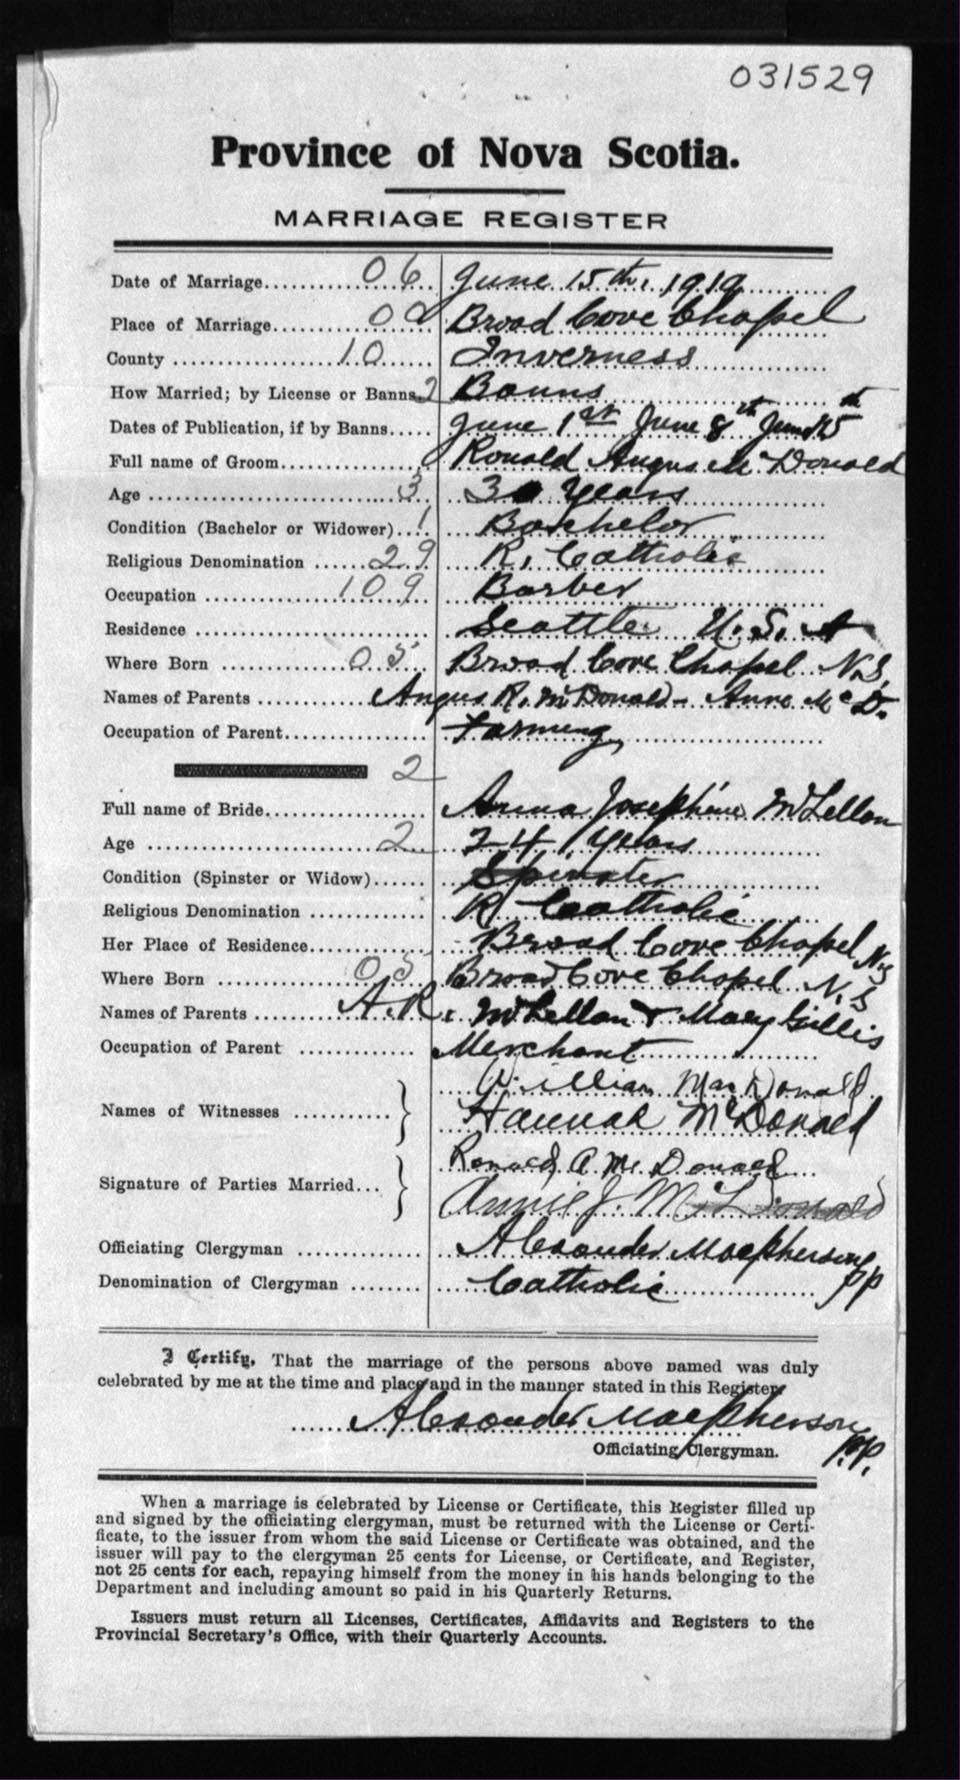 031529
Province of Nova Scotia.
MARRIAGE REGISTER
Date of Marriage 06 June 15th, 1919
Place of Marriage 0 Broad Cove Chapel
County 10 Inverness
How Married; by License or Banns 2 Banns
Dates of Publication, if by Banns June 1st June 8th June 15th
Full name of Groom Ronald Angus McDonald
Age 3 30 Years
Condition (Bachelor or Widower) 1 Bachelor
Religious Denomination 29 R. Catholic
Occupation 109 Barber
Residence Seattle U.S.A
Where Born 05 Broad Cove Chapel N.S.
Names of Parents Angus R. McDonald - Anne McD.
Occupation of Parent Farming
2
Full name of Bride Anna Josephine McLellan
Age 2 24 Years
Condition (Spinster or Widow) Spinster
Religious Denomination R Catholic
Her Place of Residence Broad Cove Chapel N.S
Where Born 05 Broad Cove Chapel N.S
Names of Parents A.R. McLellan & Mary Gillis
Occupation of Parent Merchant
William MacDonald
Names of Witnesses Hannah McDonald
Ronald A. McDonald
Signature of Parties Married Annie J. McDonald
Officiating Clergyman Alexander Macpherson PP
Denomination of Clergyman Catholic
I Certify, That the marriage of the persons above named was duly
celebrated by me at the time and place and in the manner stated in this Register
Alexander Macpherson P.P.
Officiating Clergyman.
When a marriage is celebrated by License or Certificate, this Register filled up
and signed by the officiating clergyman, must be returned with the License or Certi-
ficate, to the issuer from whom the said License or Certificate was obtained, and the
issuer will pay to the clergyman 25 cents for License, or Certificate, and Register,
not 25 cents for each, repaying himself from the money in his hands belonging to the
Department and including amount so paid in his Quarterly Returns.
Issuers must return all Licenses, Certificates, Affidavits and Registers to the
Provincial Secretary's Office, with their Quarterly Accounts.